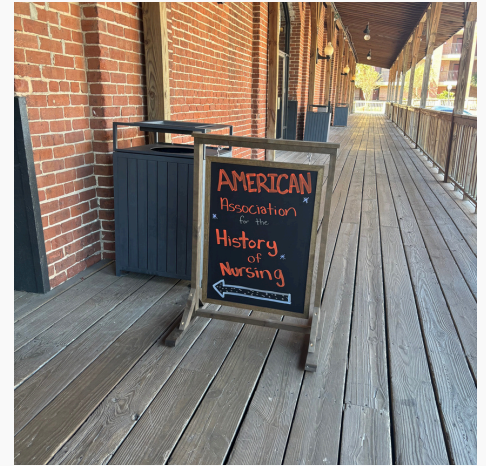 AMERICAN
Association
for the
History
of
Nursing